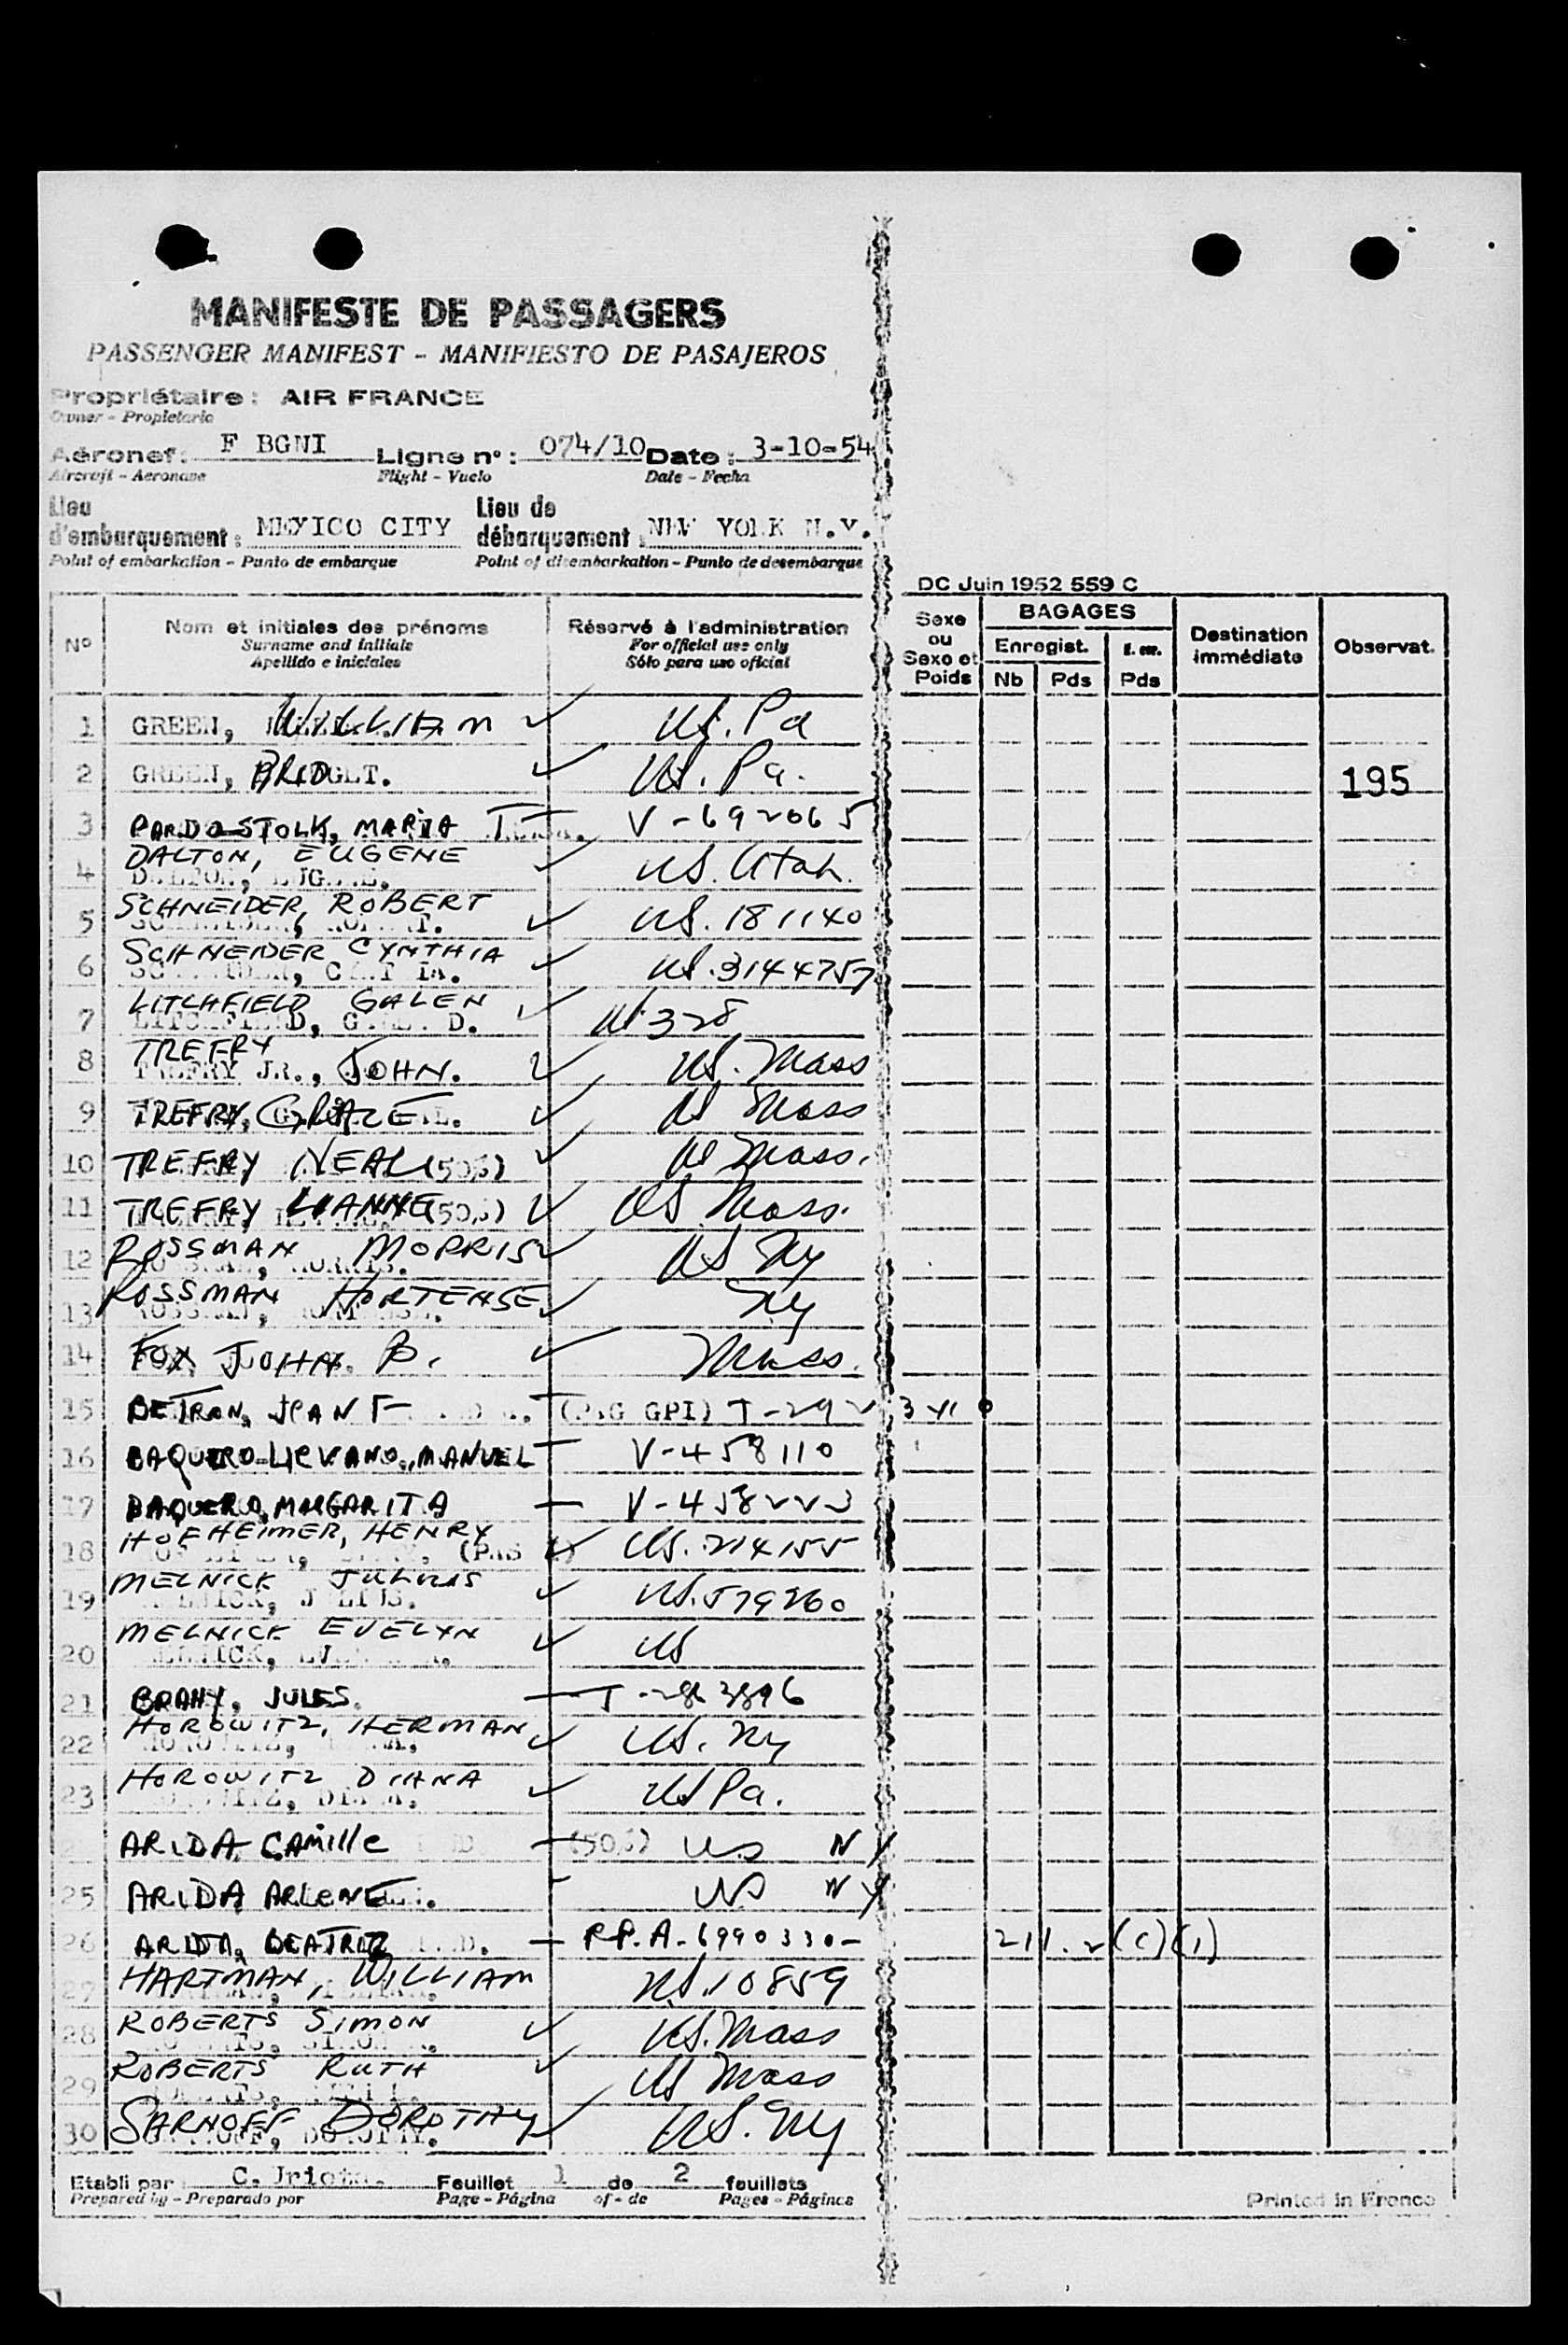 MANIFESTE DE PASSAGERS
PASSENGER MANIFEST - MANIFIESTO DE PASAJEROS
Propriétaire : AIR FRANCE
Owner - Propietario
Aéronef : F BGNI Ligne n° : 074/10 Date : 3-10-54
Aircraft - Aeronave Flight - Vuelo Date - Fecha
Lieu d'embarquement : MEXICO CITY Lieu de débarquement : NEW YORK N.Y.
Point of embarkation - Punto de embarque Point of disembarkation - Punto de desembarque
DC Juin 1952 559 C
N° Nom et initiales des prénoms Réservé à l'administration Sexe ou Sexe et Poids BAGAGES Destination immédiate Observat.
Surname and initials For official use only Enregist.
Apellido e iniciales Sólo para uso oficial Nb Pds Pds
1 GREEN, WILLIAM ✓ US. Pa
2 GREEN, BRIDGET. ✓ US. Pa. 195
3 PARDO-STOLK, MARIA T — V-692065
4 DALTON, EUGENE ✓ US. Utah.
5 SCHNEIDER, ROBERT ✓ US. 181140
6 SCHNEIDER CYNTHIA ✓ US. 3144757
7 LITCHFIELD GALEN ✓ US 328
8 TREFRY JR., JOHN. ✓ US. Mass
9 TREFRY, GRACE ✓ US Mass
10 TREFRY NEAL (50%) ✓ US Mass.
11 TREFRY LIANNE (50%) ✓ US Mass.
12 ROSSMAN MORRIS ✓ US Ny
13 ROSSMAN HORTENSE ✓ Ny
14 FOX JOHN B. ✓ Mass.
15 BETRON, JEAN F — (PAG GPI) T-292
16 BAQUERO-LIEVANO, MANUEL — V-458110
17 BAQUERO, MARGARITA — V-458223
18 HOFHEIMER, HENRY ✓ US. 214155
19 MELNICK JULIUS ✓ US. 579260
20 MELNICK EVELYN ✓ US
21 BRAHY, JULES. — T
22 HOROWITZ, HERMAN ✓ US. Ny
23 HOROWITZ DIANA ✓ US Pa.
ARIDA CAMille — (50%) US NY
25 ARIDA ARLENE — US NY
26 ARIDA, BEATRIZ — P.P.A-6990330- 211.2 (c)(1)
27 HARTMAN, WILLIAM US. 10859
28 ROBERTS SIMON ✓ US. Mass
29 ROBERTS RUTH ✓ US Mass
30 SARNOFF DOROTHY ✓ US. Ny
Etabli par : C. Feuillet 1 de 2 feuillets
Prepared by - Preparado por Page - Página of - de Pages - Páginas
Printed in France